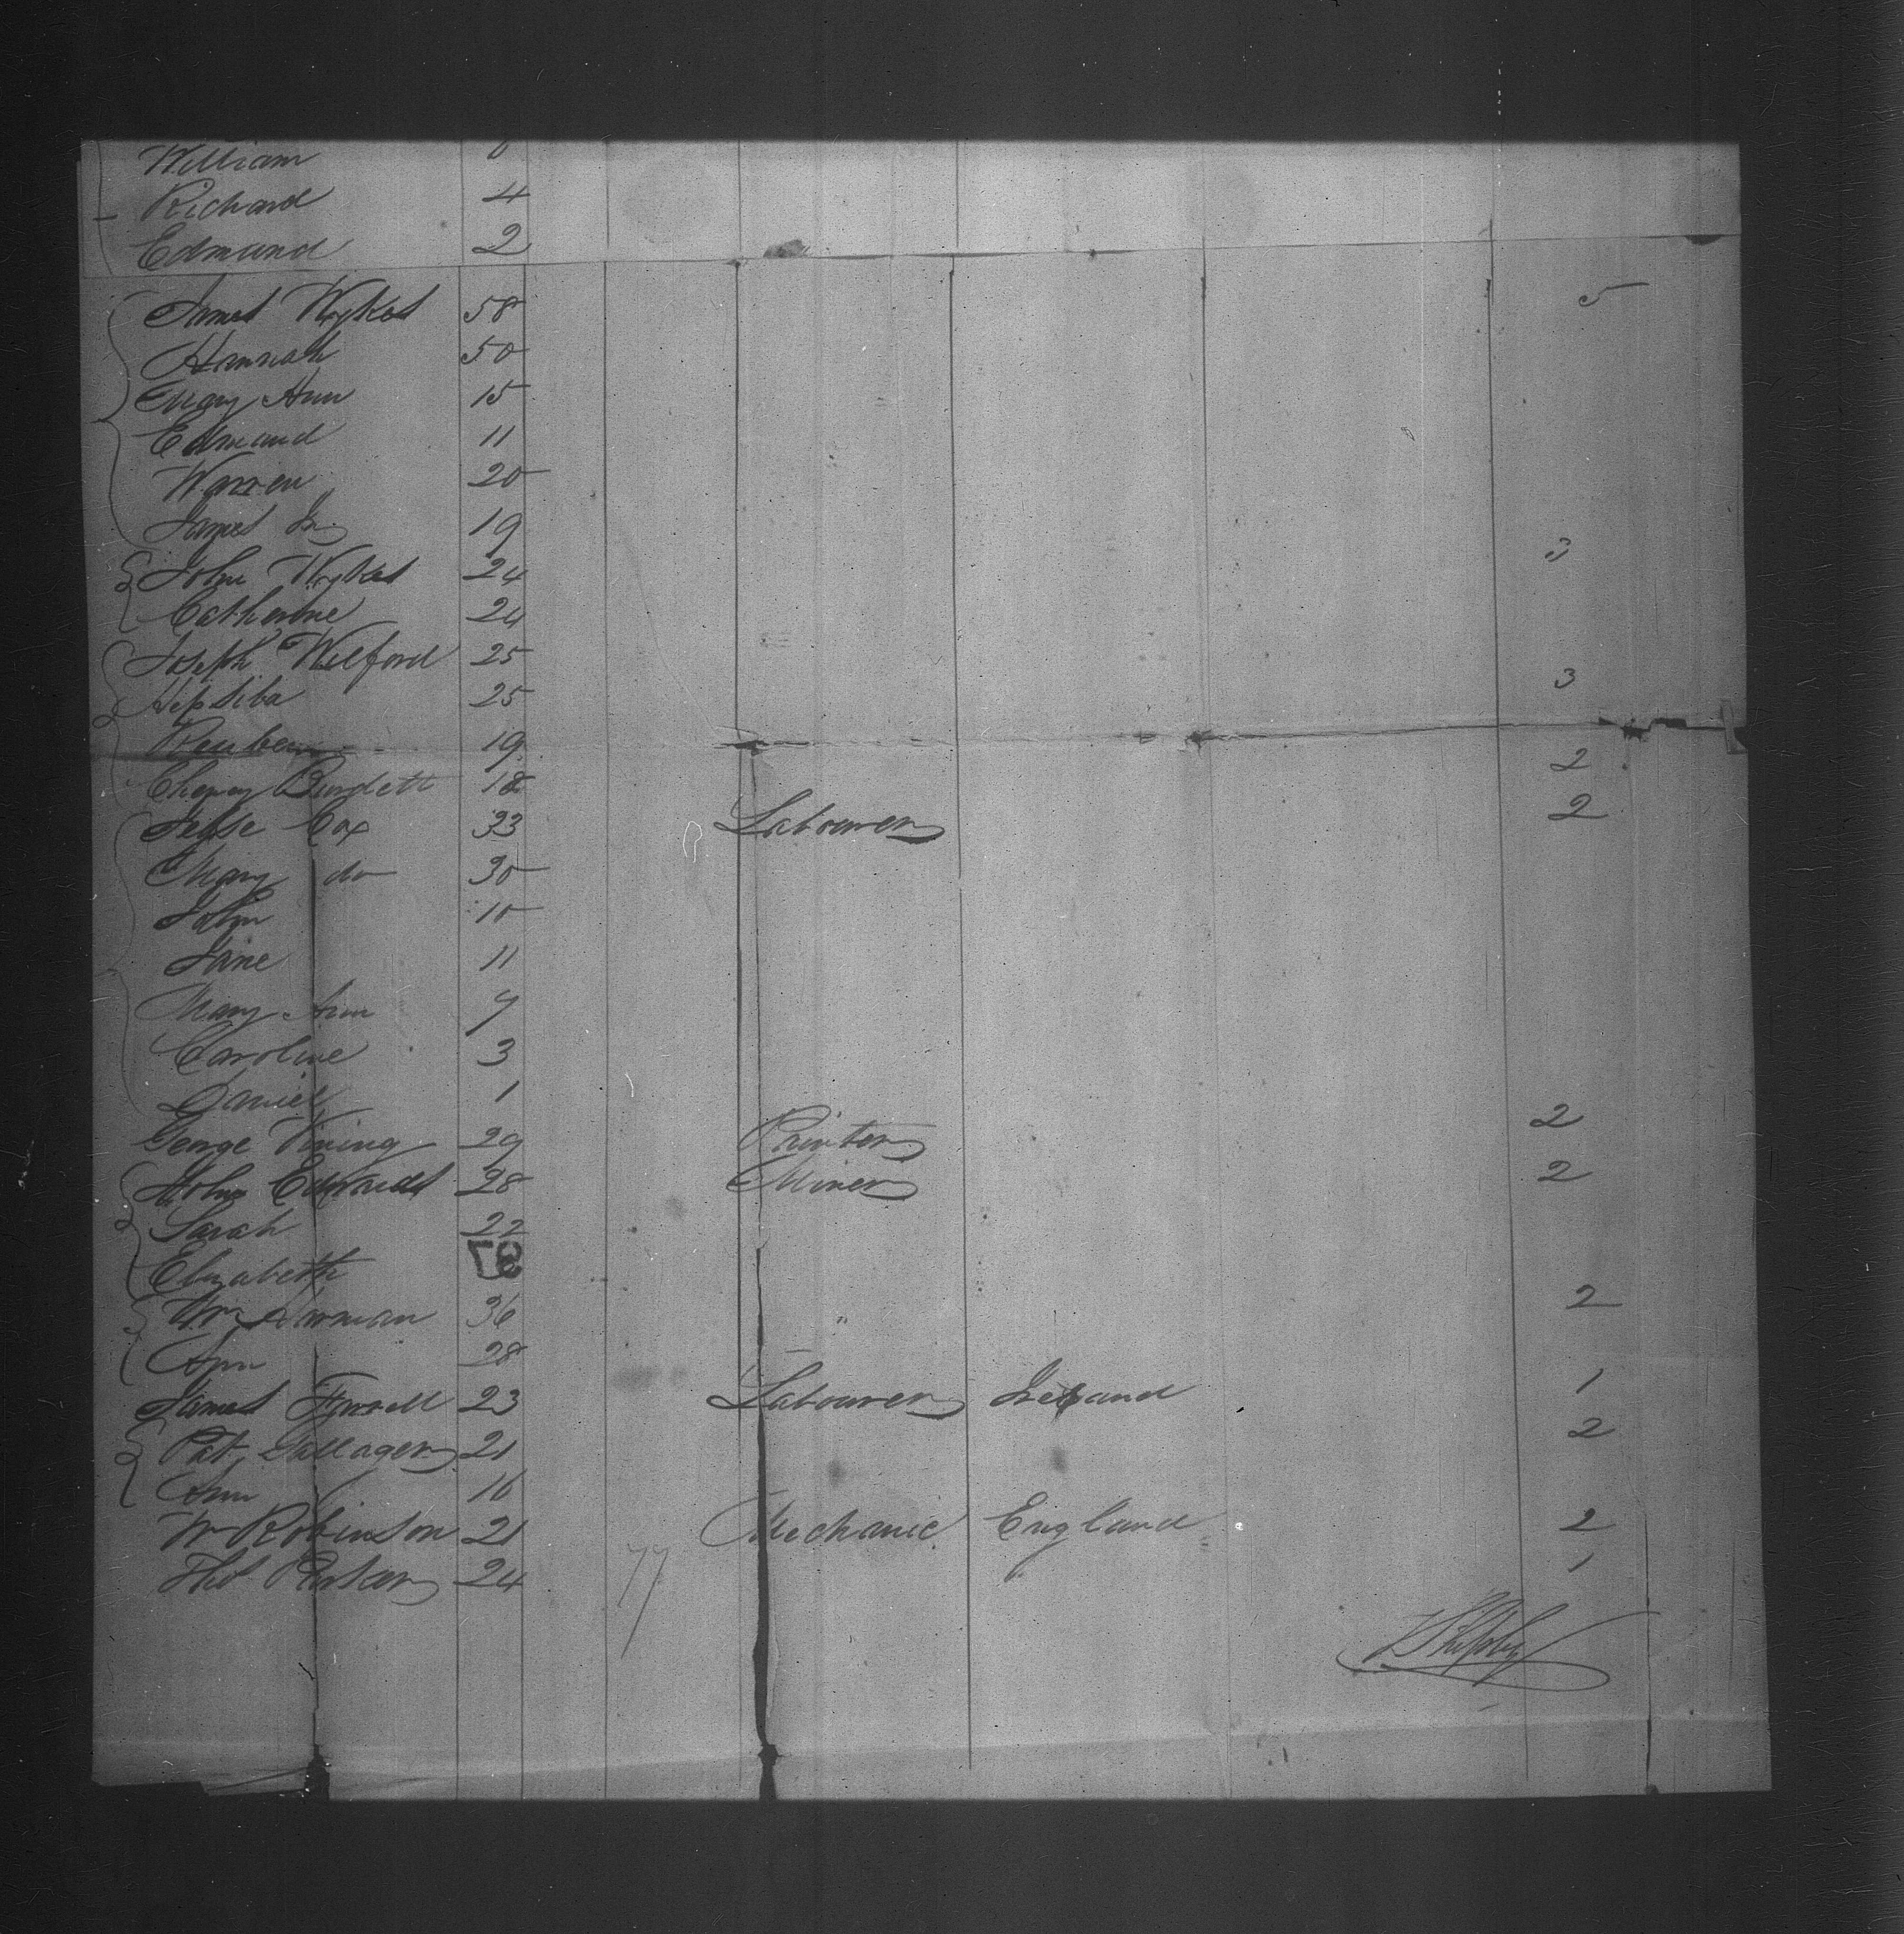 William
Richard 4
Edmund 2
James Wykes 58 5
Hannah 50
Mary Ann 15
Edmund 11
Warren 20
James Jr 19
John Wykes 24 3
Catherine 24
Joseph Wilford 25
Hepsiba 25 3
Reuben 19
Burdett 18 2
Jesse Cox 33 Labourer 2
Mary do 30
John 10
Jane 11
Mary Ann 7
Caroline 3
Daniel 1
George Vining 29 Printer 2
John Edwards 28 Miner 2
Sarah 22
97
Elizabeth
Wm Harman 36 " 2
Ann 28
James Tyrrell 23 Labourer Ireland 1
Pat Gallager 21 2
Ann 16
Wm Robinson 21 Mechanic England 2
Thos 24 1
77